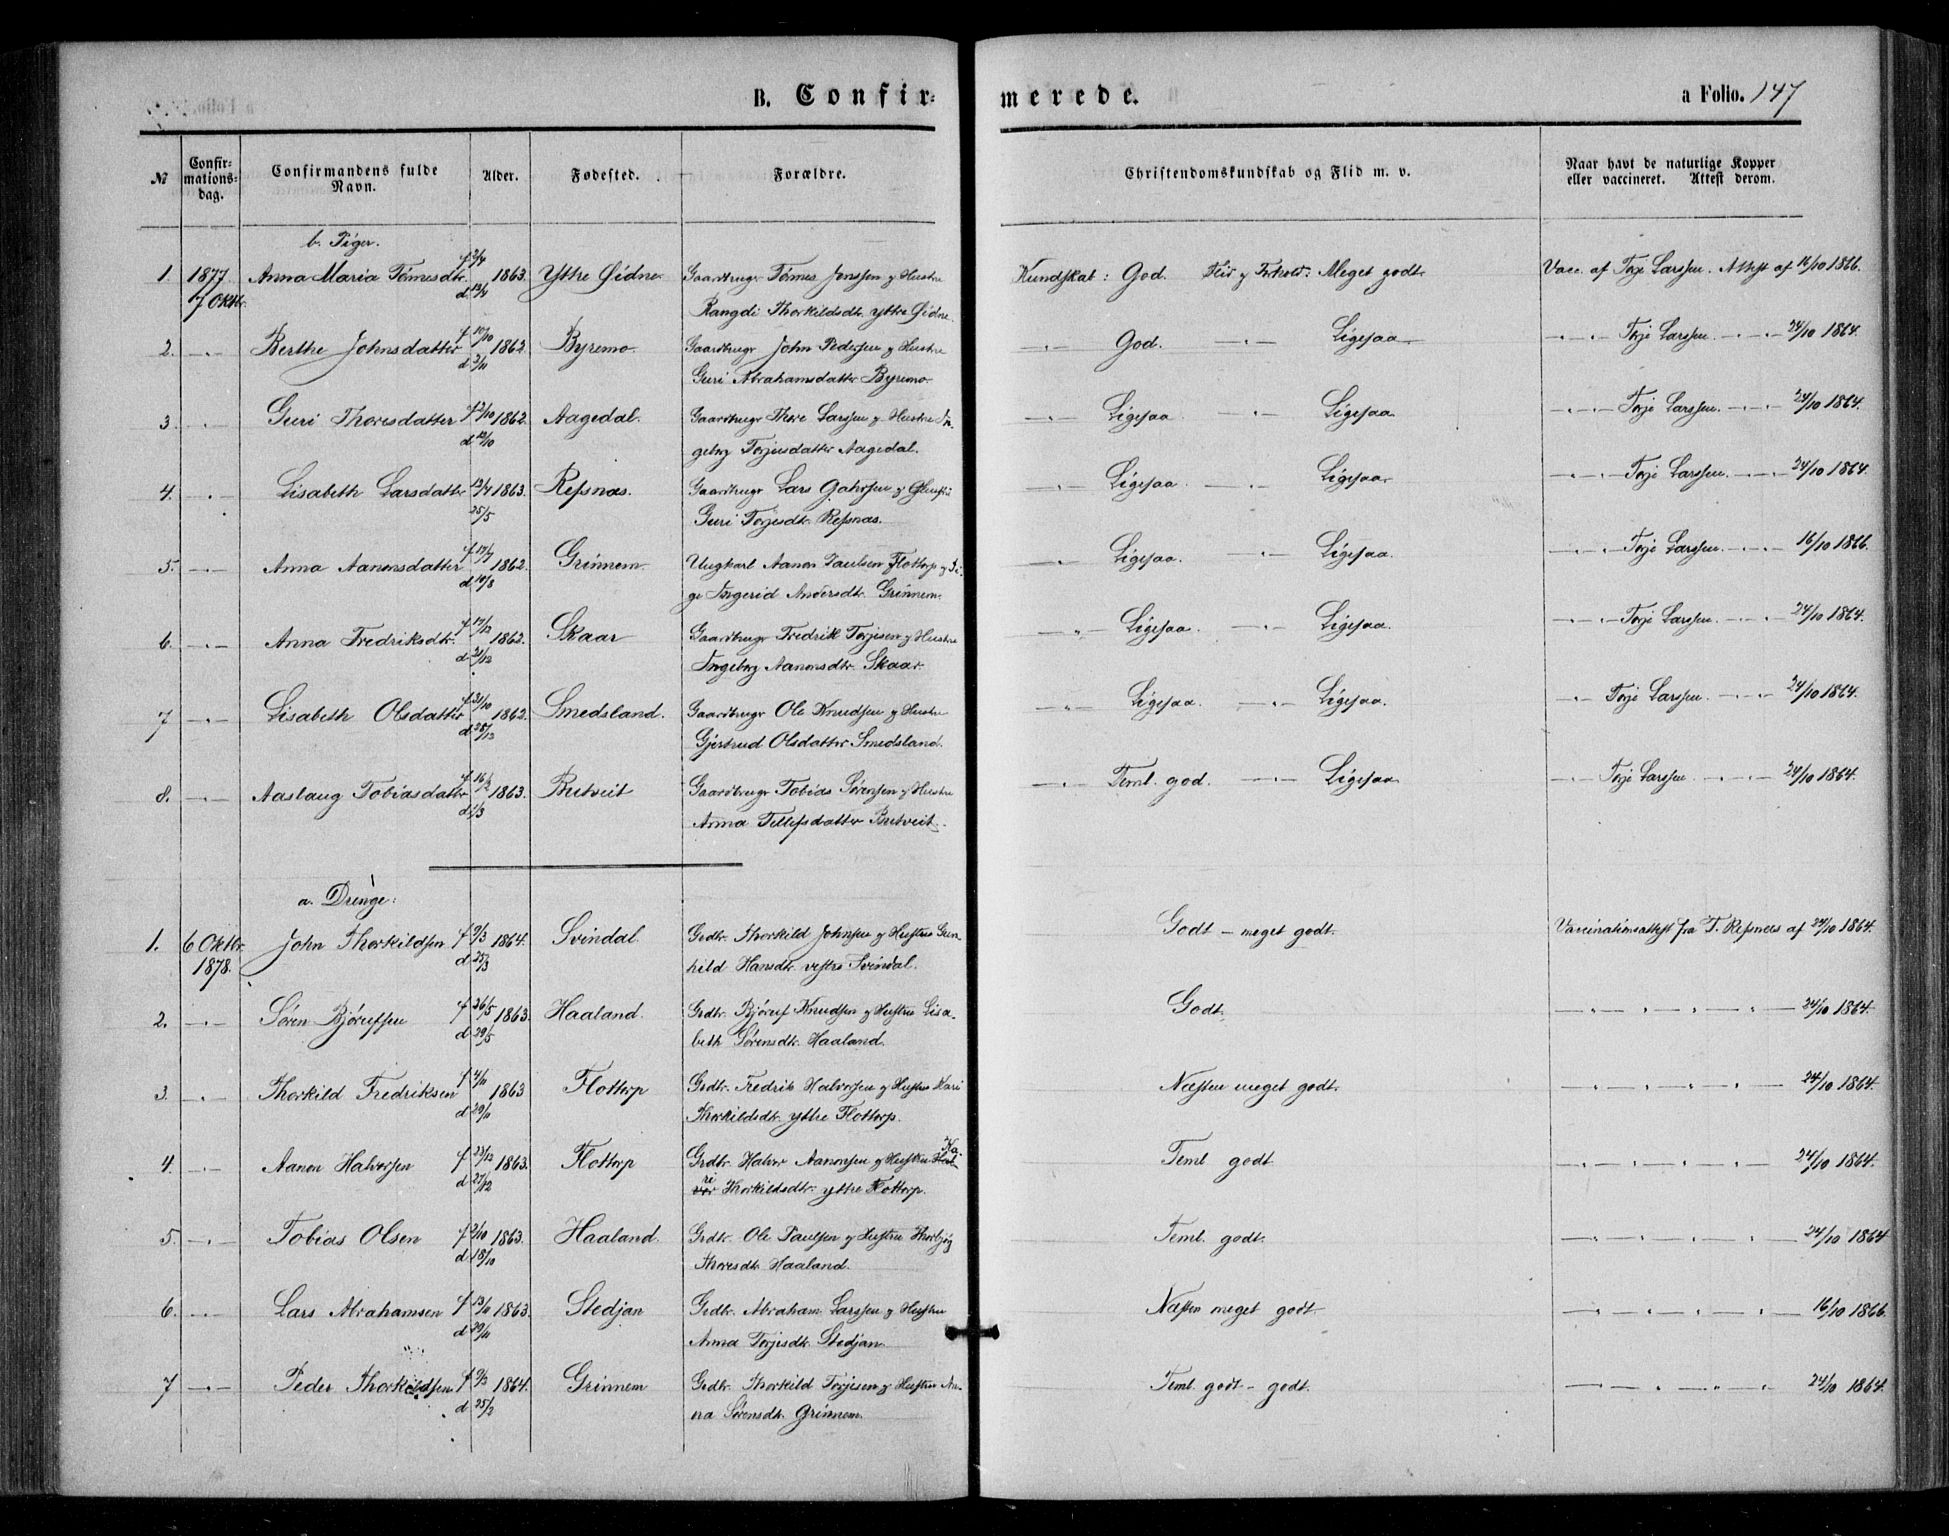 B. Confir-
merede.
a Folio. 147
№
Confir-
mations-
dag.
Confirmandens fulde
Navn.
Alder.
Fødested.
Forældre.
Christendomskundskab og Flid m. v.
Naar havt de naturlige Kopper
eller vaccineret. Attest derom.
b. Piger.
1. 1877 Anna Maria Tømesdtr. f 1863. Yttre Øidne Gaardbrugr Tømes Jonssen og Hustru Kundskab: God Flid og Forhold: Meget godt Vacc. af Torje Larssen. Attest af 16/10 1866.
7 Oktbr. d Rangdi Thorkildsdtr. yttre Øidne.
2. -"- Berthe Johnsdatter f 10/10 1862 Byremo. Gaardbrugr John Pedersen og Hustru -"- God. -"- Ligesaa -"- Torje Larssen. -"- 24/10 1864.
d 2/11 Guri Abrahamsdatter Byremo.
3. -"- Guri Thoresdatter f 2/10 1862. Aagedal. Gaardbrugr Thore Larssen og Hustru In- -"- Ligesaa -"- Ligesaa -"- Torje Larssen. -"- 24/10 1864.
d 12/10 geborg Torjusdatter Aagedal.
4. -"- Lisabeth Larsdatter 13/4 1863. Refsnæs. Gaardbrugr Lars Gahrsen og Hustru -"- Ligesaa. -"- Ligesaa -"- Torje Larssen -"- 24/10 1864.
25/5 Guri Torjesdtr. Refsnæs.
5. -"- Anna Aanensdatter f 17/7 1862. Grinnem. Ungkarl Aanen Paulsen Flottorp og Pi- -"- Ligesaa. -"- Ligesaa. -"- Torje Larssen -"- 16/10 1866.
d 10/8 ge Torgerid Andersdtr. Grinnem.
6. -"- Anna Fredriksdtr. f 17/12 1862. Skaar Gaardbrugr Fredrik Torjesen og Hustru -"- Ligesaa. -"- Ligesaa. -"- Torje Larssen -"- 24/10 1864.
d 21/12 Ingeborg Aanensdtr. Skaar.
7 -"- Lisabeth Olsdatter f 21/10 1862. Smedsland. Gaardbrugr Ole Knudsen og Hustru -"- Ligesaa. -"- Ligesaa. -"- Torje Larssen. -"- 24/10 1864.
d 25/12 Gjertrud Olsdatter Smedsland.
8. -"- Aaslaug Tobiasdatter f 16/2 1863. Butveit Gaardbrugr Tobias Sørensen og Hustru -"- Teml. god. -"- Ligesaa -"- Torje Larssen -"- 24/10 1864.
d 1/3 Anna Tellefsdatter Butveit.
a. Drenge:
1. 6 Oktbr. John Thorkildsen f 9/3 1864. Svindal. Grdbr. Thorkild Johnsen og Hustru Gun- Godt - meget godt. Vaccinationsattest fra T. Refsnes af 24/10 1864.
1878. d 25/3 hild Hansdtr. vestre Svindal.
2. -"- Søren Bjørufsen f 26/5 1863. Haaland. Grdbr. Bjøruf Knudsen og Hustru Lisa- Godt. -"- 24/10 1864.
d 29/5 beth Sørensdtr. Haaland.
3. -"- Thorkild Fredriksen f 4/11 1863 Flottorp Grdbr. Fredrik Halvorsen og Hustru Kari Næsten meget godt. -"- 24/10 1864.
d 29/11 Thorkildsdtr. yttre Flottorp.
4. -"- Aanen Halvorsen f 23/12 1863. Flottorp Grdbr. Halvor Aanensen og Hustru Ka- Teml godt -"- 24/10 1864.
d 27/12 ri Thorkildsdtr. yttre Flottorp.
5. -"- Tobias Olsen f 2/10 1863. Haaland. Grdbr. Ole Paulsen og Hustru Thorbjøg Teml. godt. -"- 24/10 1864
d 18/10 Thoresdtr. Haaland.
6. -"- Lars Abrahamsen f 13/11 1863. Stedjan Grdbr. Abraham Larssen og Hustru Næsten meget godt -"- 16/10 1866.
d 29/11 Anna Torjesdtr. Stedjan.
7 -"- Peder Thorkildsen f 9/2 1864. Grinnem Grdbr. Thorkild Torjesen og Hustru An- Teml. godt - godt. -"- 24/10 1864.
d 25/2 na Sørensdtr. Grinnem.